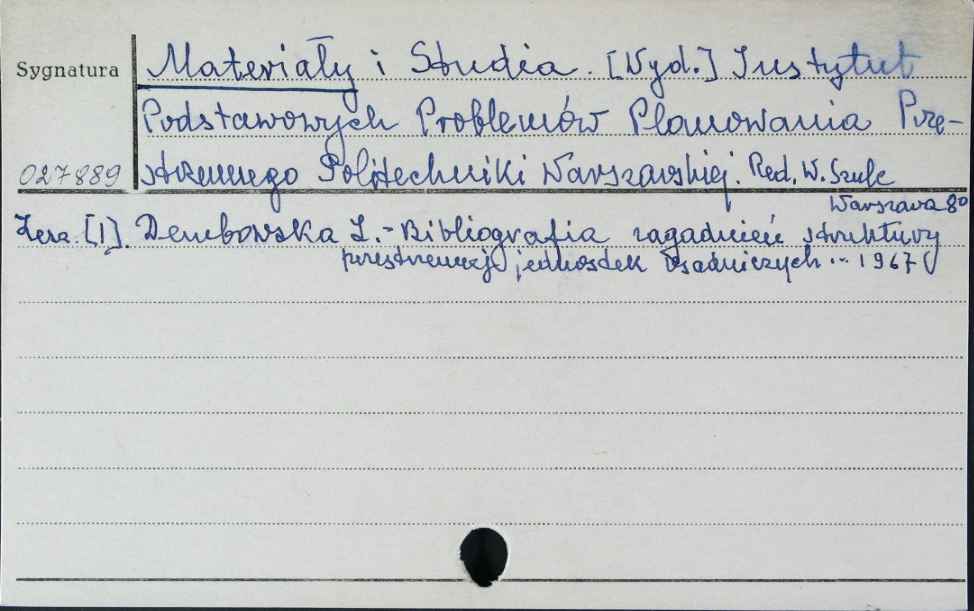 Sygnatura
Materiały i Studia. [Wyd.] Instytut
Podstawowych Problemów Planowania Prze-
027889 strzennego Politechniki Warszawskiej. Red. W. Szulc
Warszawa 8º
Zesz. [1]. Dembowska Z. - Bibliografia zagadnień struktury
przestrzennej jednostek osadniczych ... 1967